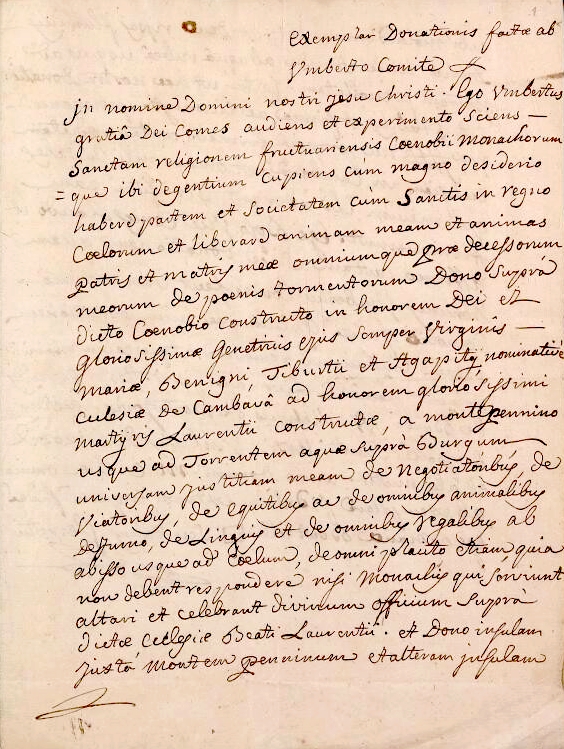 Exemplar Donationis factæ ab
Vmberto Comite
Jn nomine Domini nostri Jesu Christi. Ego Vmbertus
gratiâ Dei Comes audiens et experimento sciens —
Sanctam religionem fructuariensis Coenobii Monachorum
= que ibi degentium Cupiens cum magno desiderio
habere partem et Societatem cùm Sanctis in regno
Coelorum et liberare animam meam et animas
patris et matris meæ omniumque præ decessorum
meorum de poenis tormentorum Dono Suprà
dicto Coenobio Constructo in honorem Dei et
Gloriosissimæ Genetricis ejus Semper Virginis —
Mariæ, Benigni, Tiburtii et Agapitij nominativè
Ecclesiæ De Cambavâ ad honorem gloriosissimi
martyris Laurentii Constructæ, a monte pennino
usque ad Torrentem aquæ Suprà Burgum
universam justitiam meam de Negotiatoribus, de
Viatoribus, de equitibus ac de omnibus animalibus
de Linguis et de omnibus regalibus ab
abisso usque ad Coelum, de omni placito etiam quia
non debent respondere nisi Monachis qui serviunt
altari et celebrant divinum officium Suprà
dictæ Ecclesiæ Beati Laurentii. et Dono insulam
juxtà Montem penninum et alteram insulam